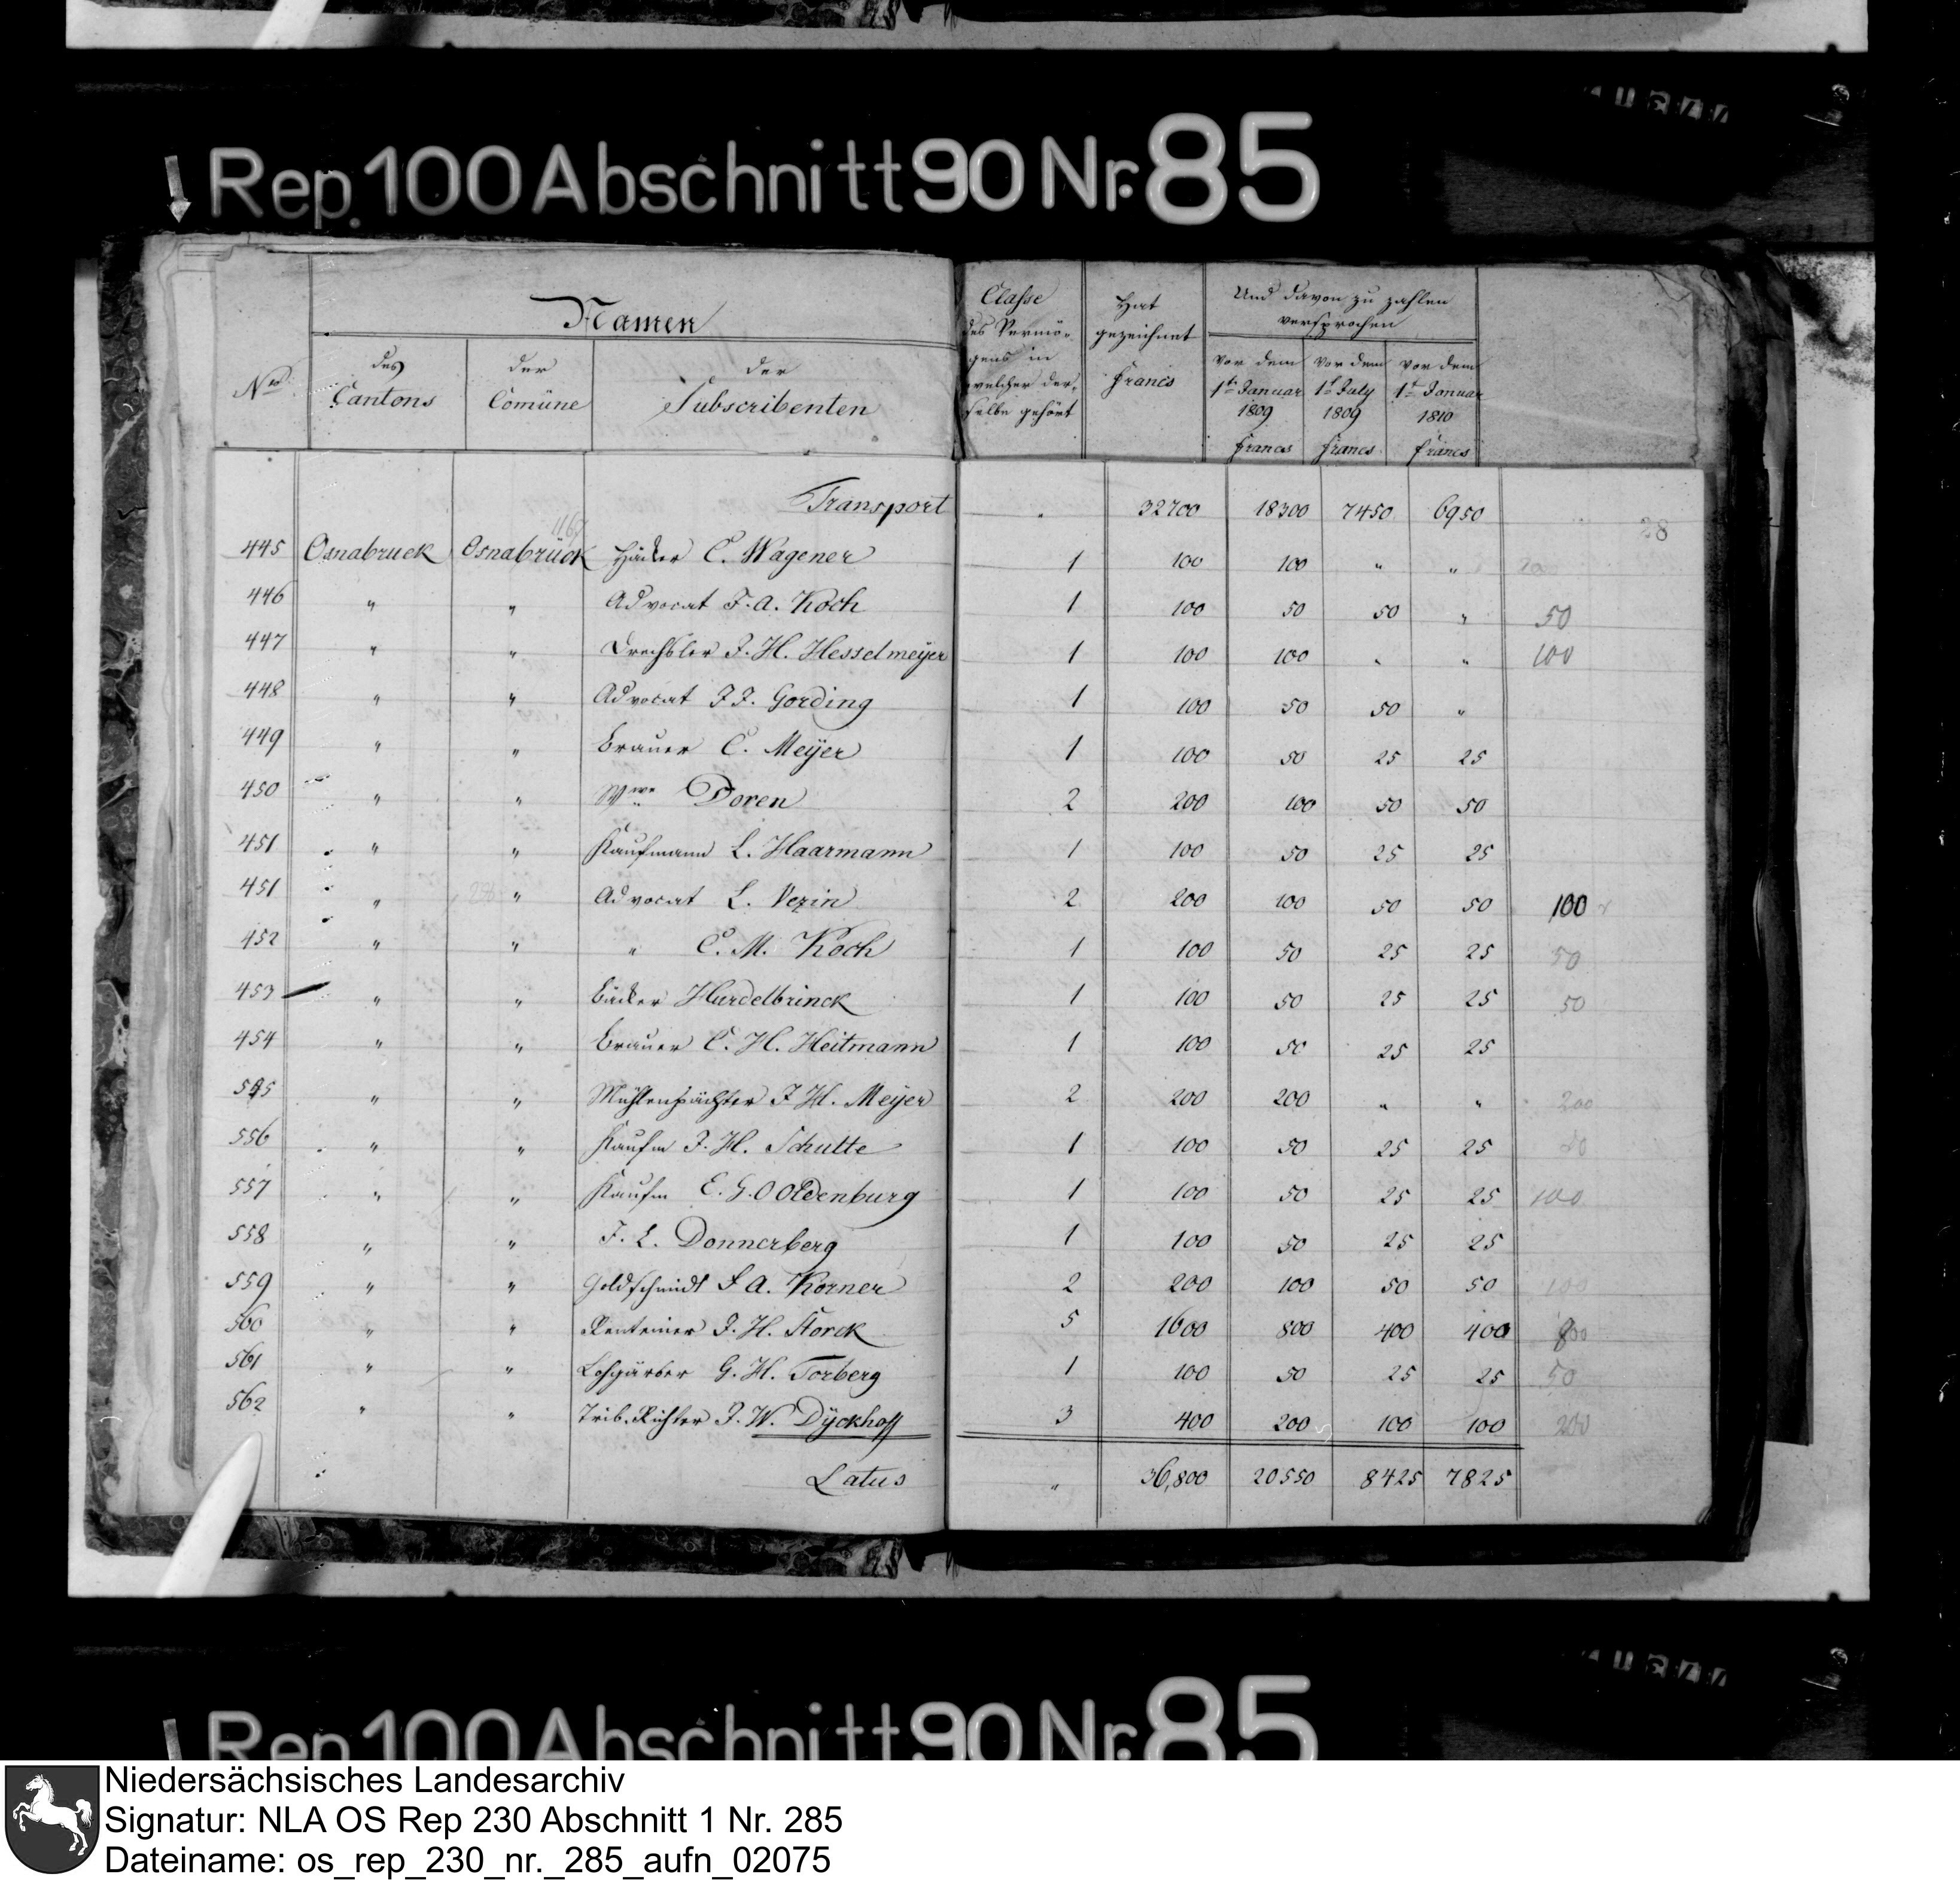 Rep. 100 Abschnitt 90 Nr. 85
Namen
Classe des Vermögens in welcher derselbe gehört
Hat gezeichnet Francs
Und davon zu zahlen versprochen
Nro
des Cantons
der Comüne
der Subscribenten
vor dem 1t Januar 1809 Francs
vor dem 1t July 1809 Francs
vor dem 1t Januar 1810 Francs
Transport " 32700 18300 7450 6950
28
1167
445 Osnabruck Osnabrück C. Wagener 1 100 100 " "
446 " " Advocat F. A. Koch 1 100 50 50 " 50
447 " " Drechsler J. H. Hesselmeÿer 1 100 100 " " 100
448 " " Advocat J J. Gording 1 100 50 50 "
449 " " Brauer C. Meÿer 1 100 50 25 25
450 " " Wwe Doren 2 200 100 50 50
451 " " Kaufmann L. Haarmann 1 100 50 25 25
451 " " Advocat L. Vezin 2 200 100 50 50 100
452 " " " C. M. Koch 1 100 50 25 25 50
453 " " Bäcker Hurdelbrinck 1 100 50 25 25 50
454 " " Brauer C. H. Heitmann 1 100 50 25 25
" " Mühlenpächter J H. Meÿer 2 200 200 " " 200
556 " " Kaufm J. H. Schutte 1 100 50 25 25
557 " " Kaufm E. G. O Oldenburg 1 100 50 25 25 100
558 " " J. E. Donnerberg 1 100 50 25 25
559 " " Goldschmidt F A. Korner 2 200 100 50 50 100
560 " " Renteiner J. H. Storck 5 1600 800 400 400 800
561 " " Lohgärber G. H. Torberg 1 100 50 25 25 50
562 " " Trib. Richter J. W. Dÿckhoff 3 400 200 100 100 200
Latus " 36,800 20550 8425 7825
Rep. 100 Abschnitt 90 Nr. 85
Niedersächsisches Landesarchiv
Signatur: NLA OS Rep 230 Abschnitt 1 Nr. 285
Dateiname: os_rep_230_nr._285_aufn_02075